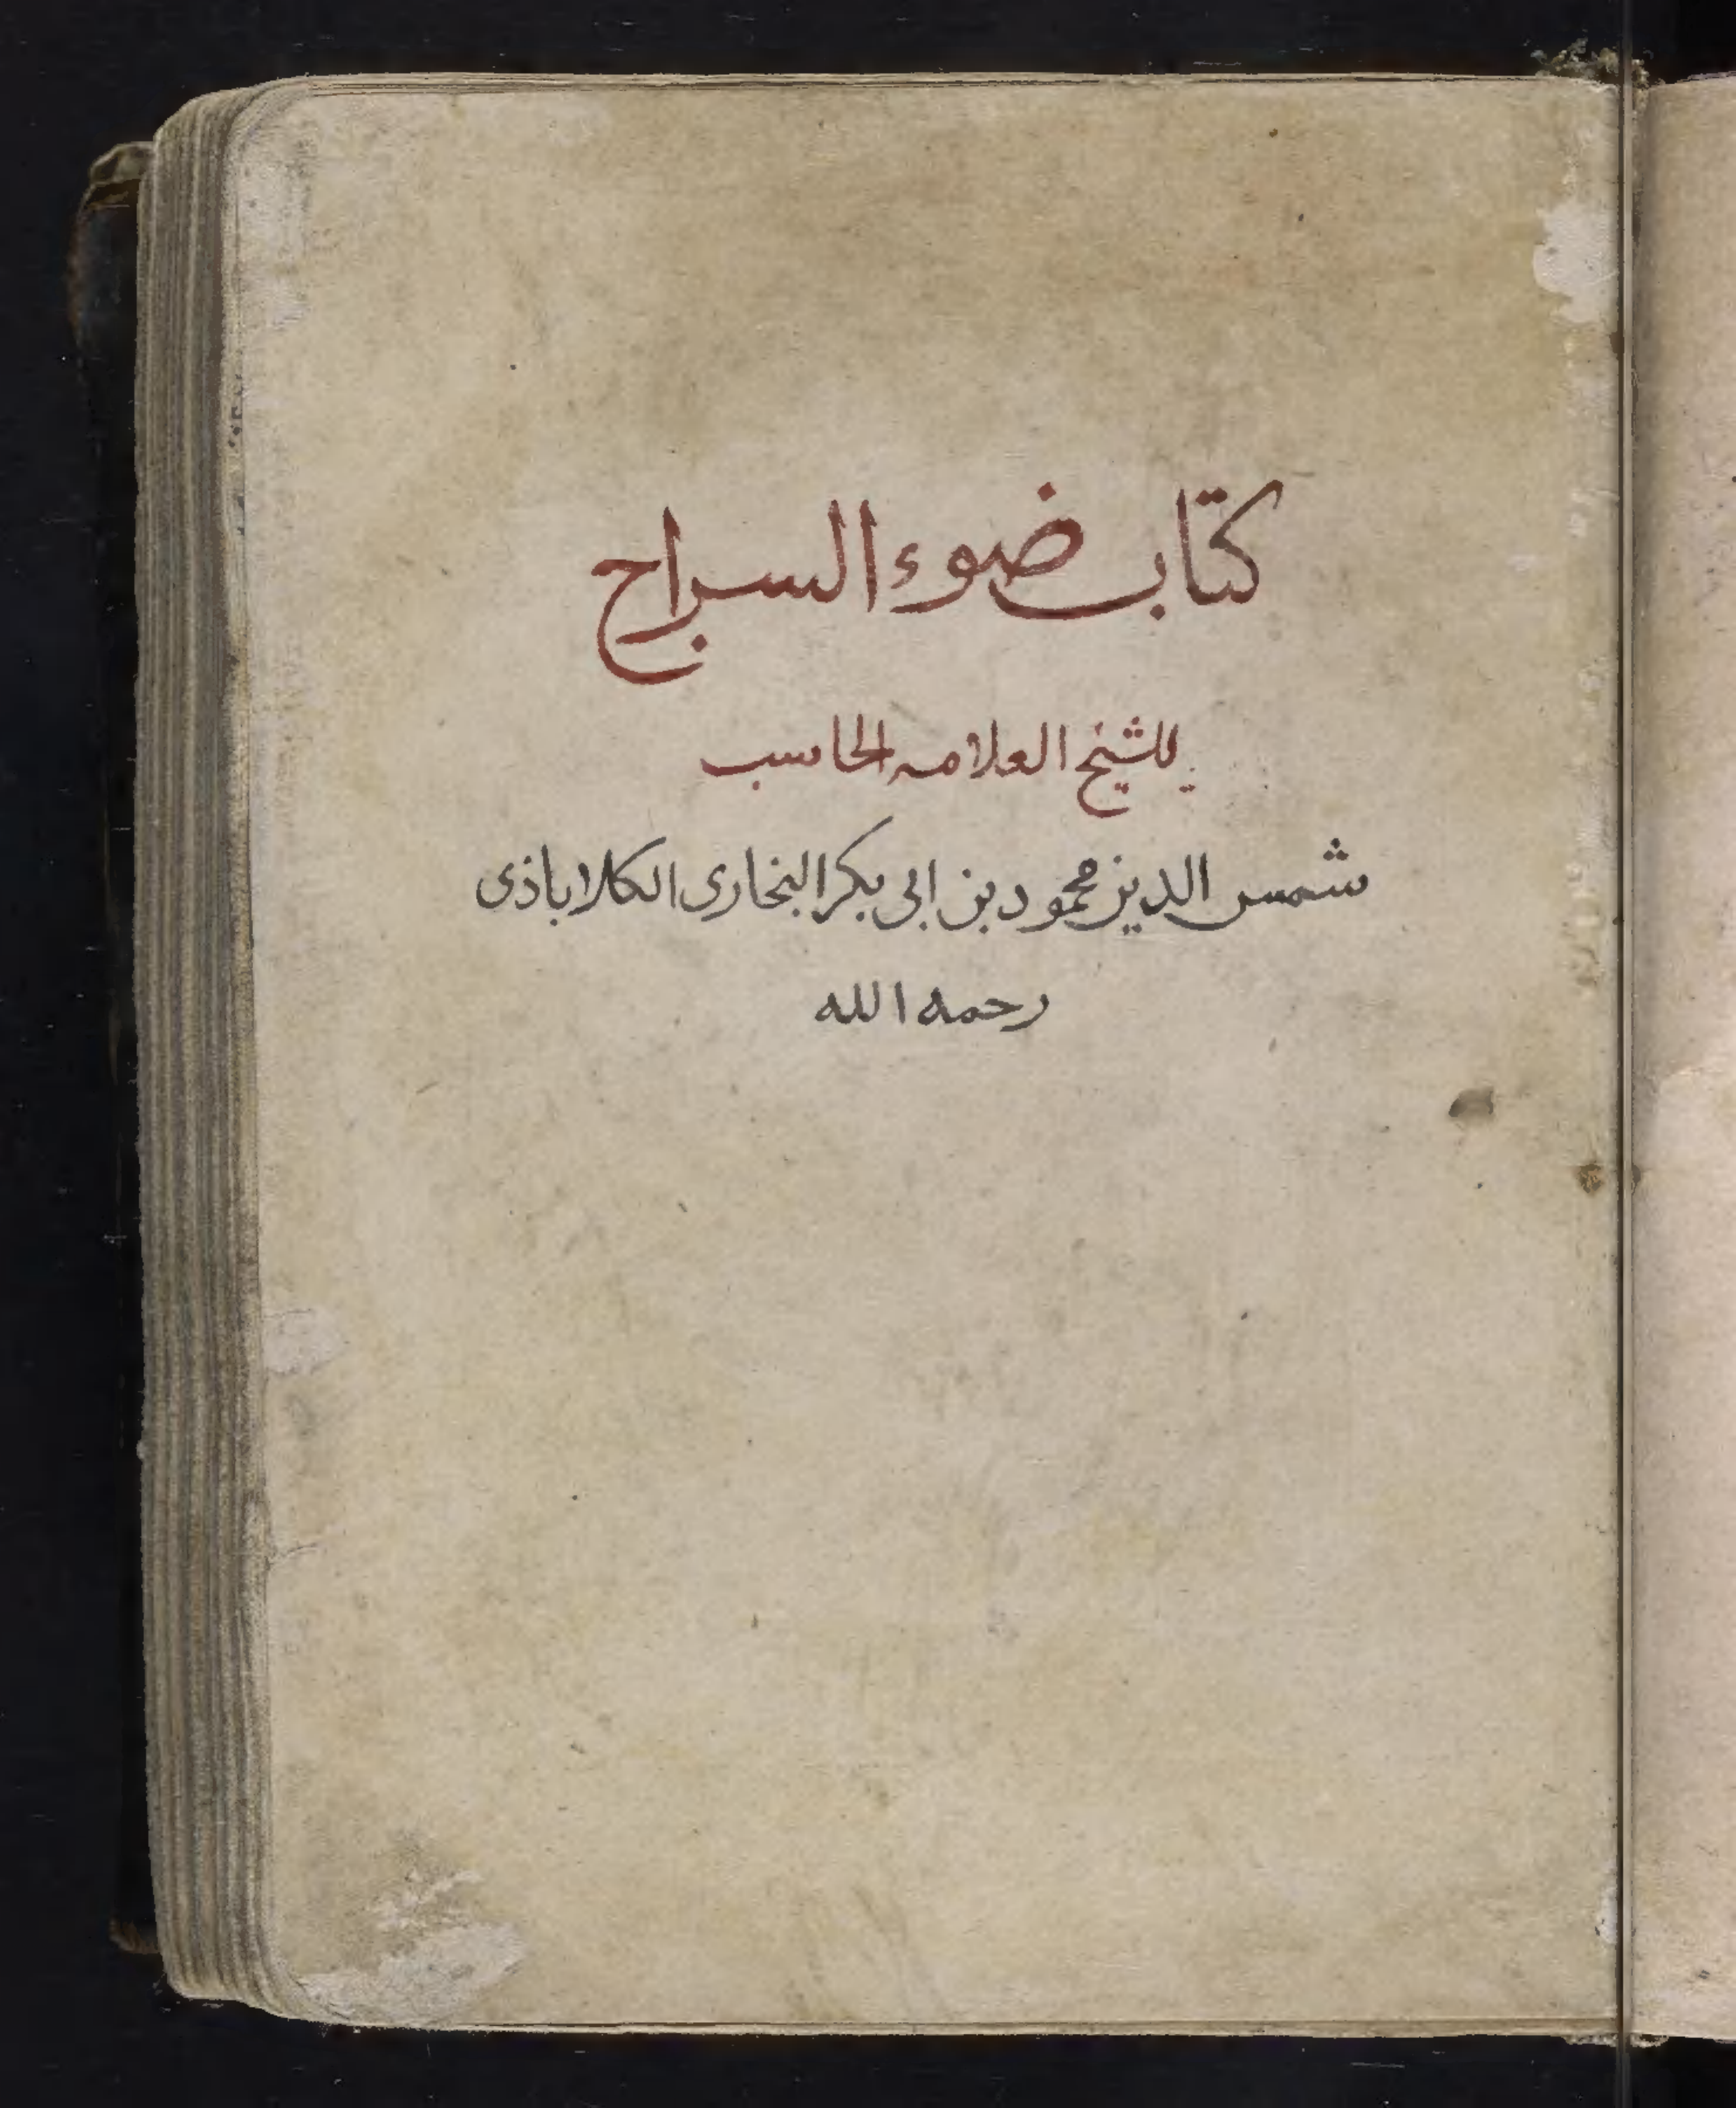 كتاب ضوء السراج
للشيخ العلامه الحاسب
شمس الدين محمود بن ابى بكر البخارى الكلاباذى
رحمه الله